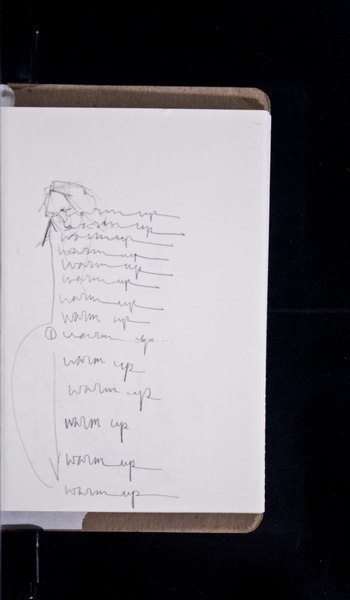 warm up
warm up
warm up
warm up
warm up
warm up
warm up
warm up
① warm up
warm up
warm up
warm up
warm up
warm up